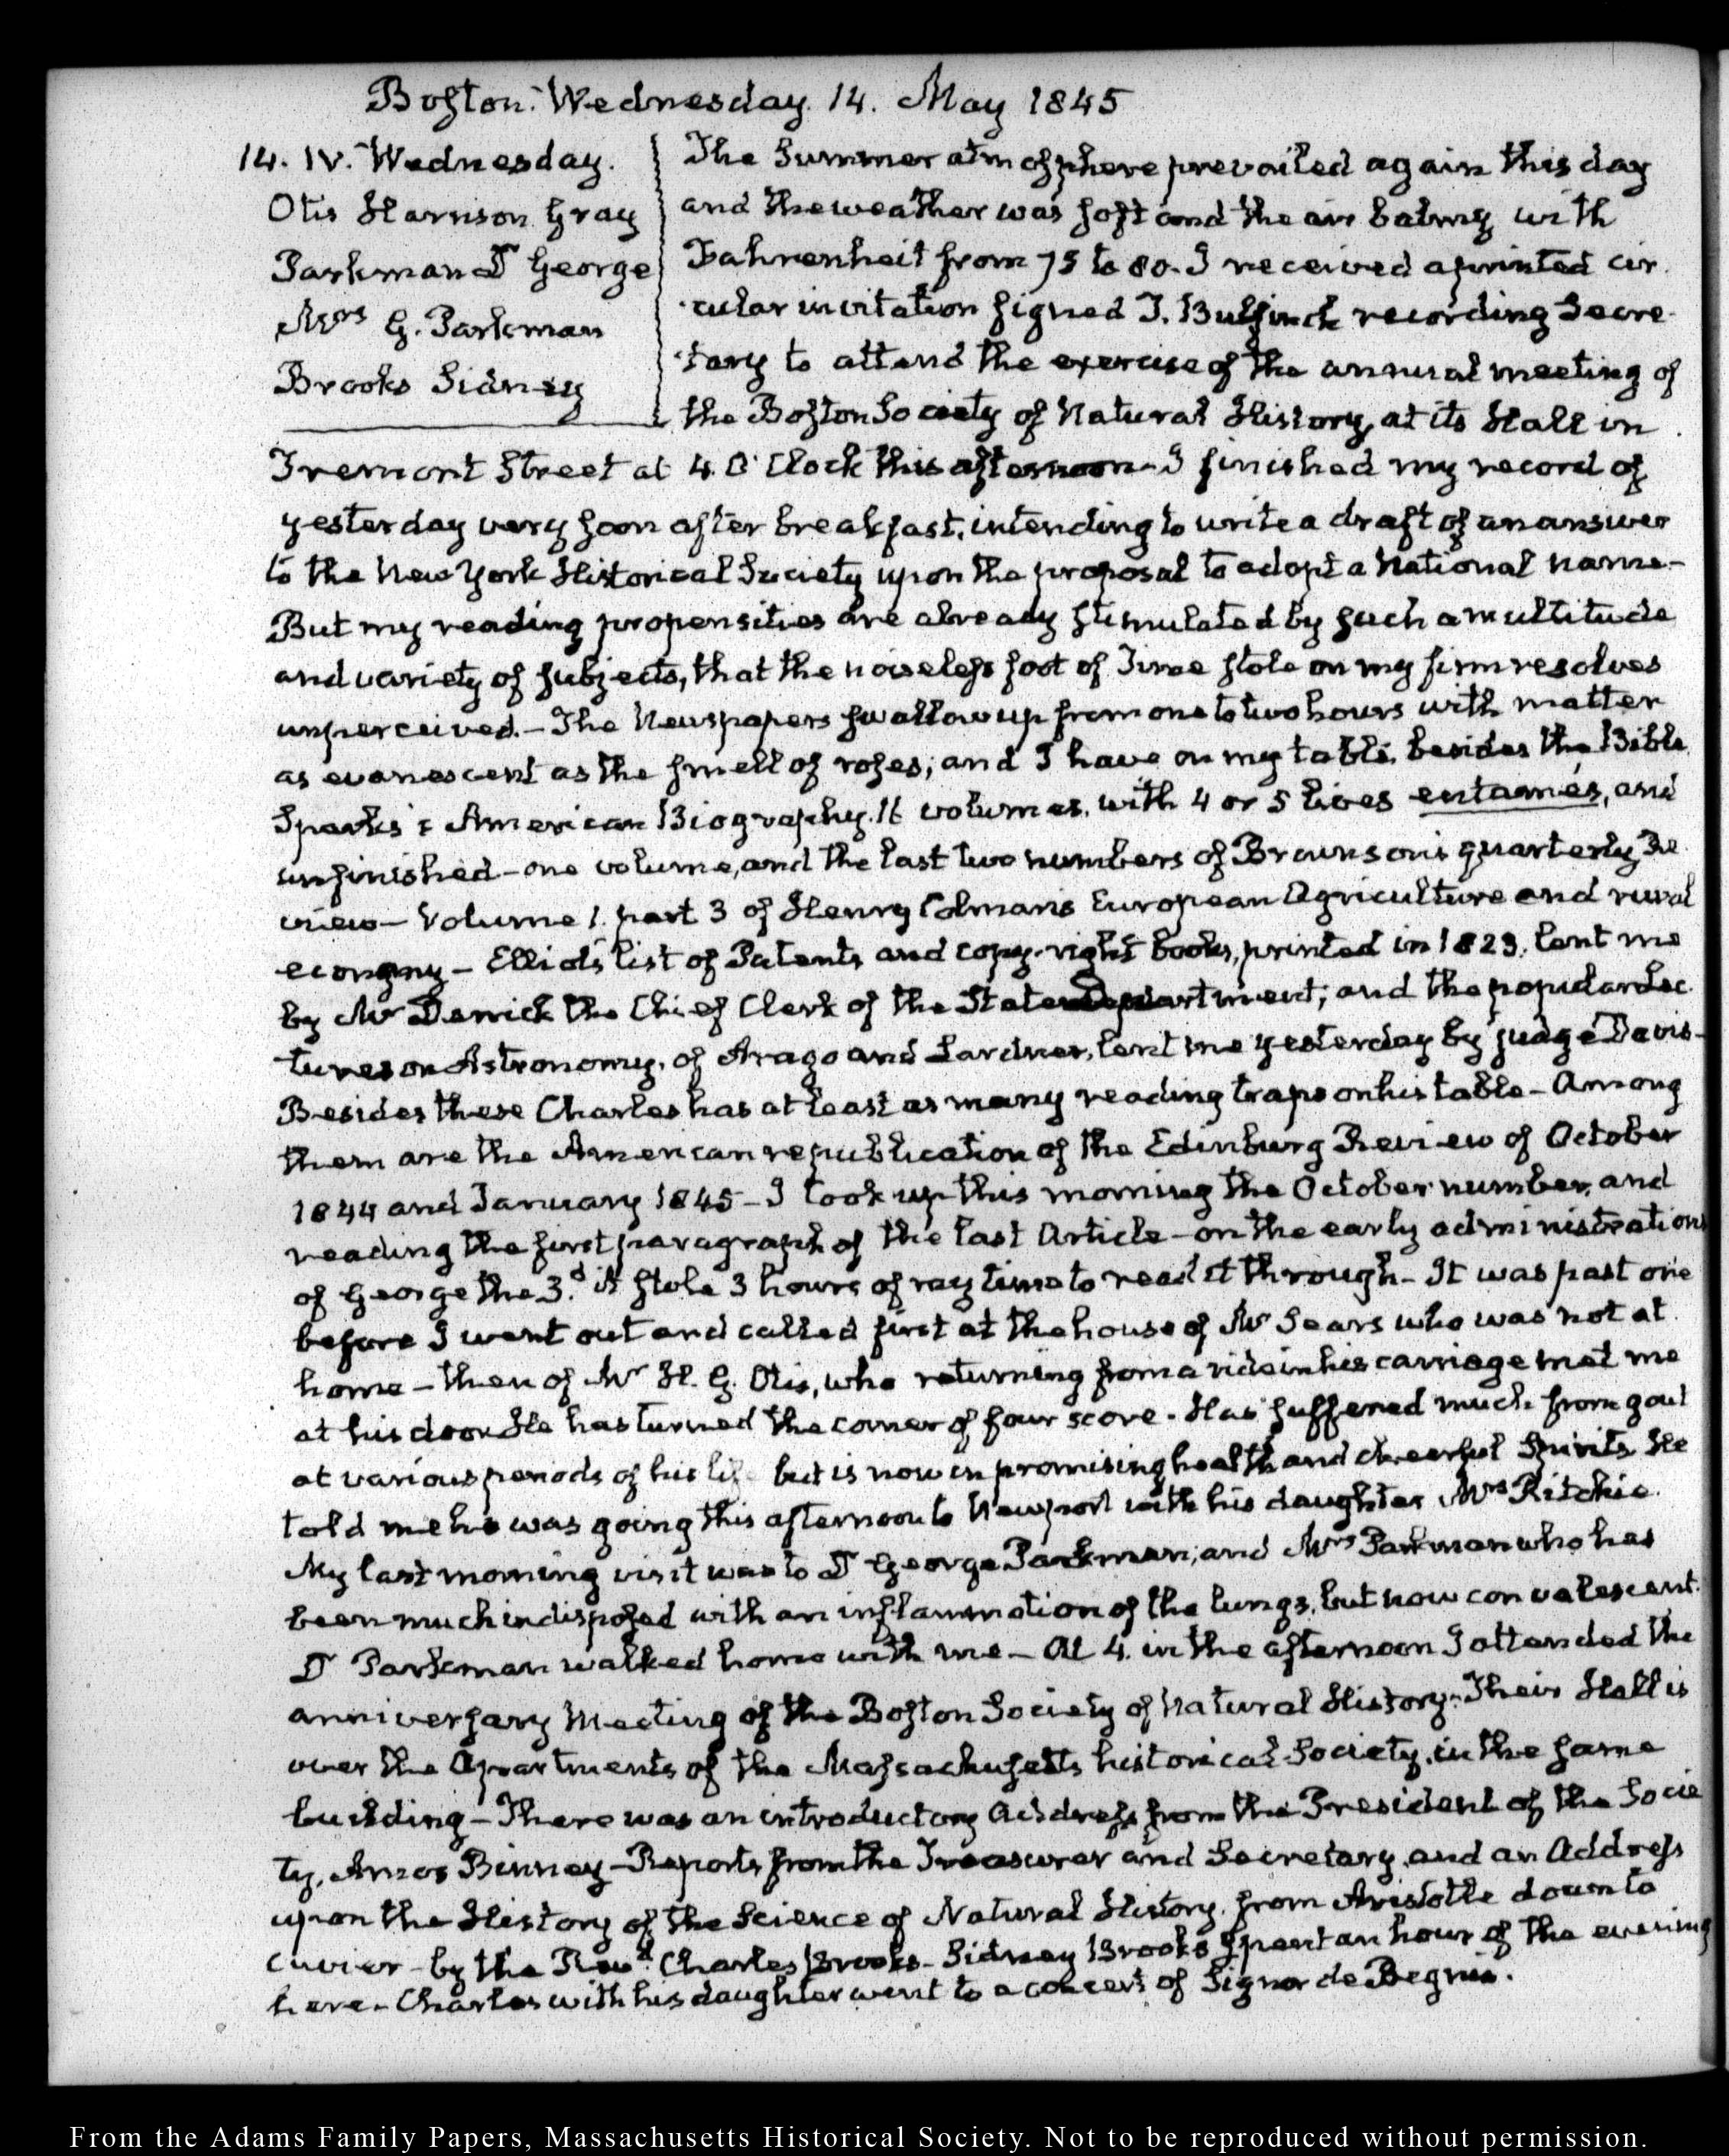 Boston. Wednesday. 14. May 1845
14. IV. Wednesday.
Otis Harrison Gray
Parkman Dr George
Mrs G. Parkman
Brooks Sidney
The Summer atmosphere prevailed again this day
and the weather was soft and the air balmy with
Fahrenheit from 75 to 80. I received a printed cir-
-cular invitation signed T. Bulfinch recording Secre-
-tary to attend the exercise of the annual meeting of
the Boston Society of Natural History, at its Hall in
Tremont Street at 4. O'Clock this afternoon- I finished my record of
yesterday very soon after breakfast, intending to write a draft of an answer
to the New York Historical Society upon the proposal to adopt a National name-
But my reading propensities are already stimulated by such a multitude
and variety of subjects, that the noiseless foot of Time stole on my firm resolves
unperceived.- The Newspapers swallow up from one to two hours with matter
as evanescent as the smell of roses; and I have on my table, besides the Bible
Sparks's American Biography. 16 volumes. with 4 or 5 lives entamés, and
unfinished- one volume, and the last two numbers of Brownson's quarterly Re
view- Volume 1. part 3 of Henry Colman's European Agriculture and rural
economy- Elliot's list of Patents and copy-right books, printed in 1823. lent me
by Mr Derrick the Chief Clerk of the State Department; and the popular Lec
tures on Astronomy, of Arago and Lardner, lent me yesterday by judge Davis-
Besides these Charles has at least as many reading traps on his table- Among
them are the American republication of the Edinburg Review of October
1844 and January 1845- I took up this morning the October number, and
reading the first paragraph of the last Article- on the early administrations
of George the 3.d it stole 3 hours of my time to read it through- It was past one
before I went out and called first at the house of Mr Sears who was not at
home- then of Mr H. G. Otis, who returning from a ride in his carriage met me
at his door. He has turned the corner of four score. Has suffered much from gout
at various periods of his life but is now in promising health and cheerful Spirits. He
told me he was going this afternoon to Newport with his daughter Mrs Ritchie.
My last morning visit was to Dr George Parkman; and Mrs Parkman who has
been much indisposed with an inflammation of the lungs, but now convalescent.
Dr Parkman walked home with me- At 4. in the afternoon I attended the
anniversary Meeting of the Boston Society of Natural History- Their Hall is
over the Apartments of the Massachusetts historical Society. in the same
building- There was an introductory Address from the President of the Socie
ty, Amos Binney- Reports from the Treasurer and Secretary, and an Address
upon the History of the Science of Natural History. from Aristotle down to
Cuvier- by the Revd. Charles Brooks- Sidney Brooks spent an hour of the evening
here. Charles with his daughter went to a concert of Signor de Begnis.
From the Adams Family Papers, Massachusetts Historical Society. Not to be reproduced without permission.